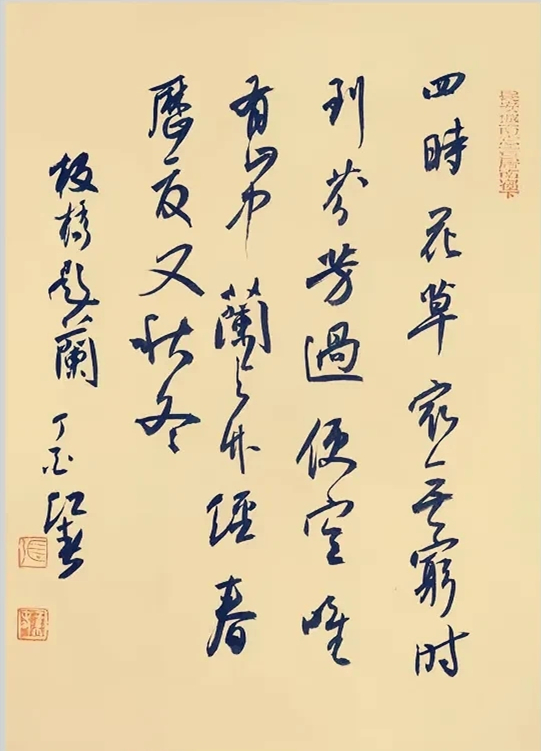 四時花草最无窮时
到芬芳過便空唯
有山中蘭与竹經春
歷夏又秋冬
板橋題蘭 丁酉